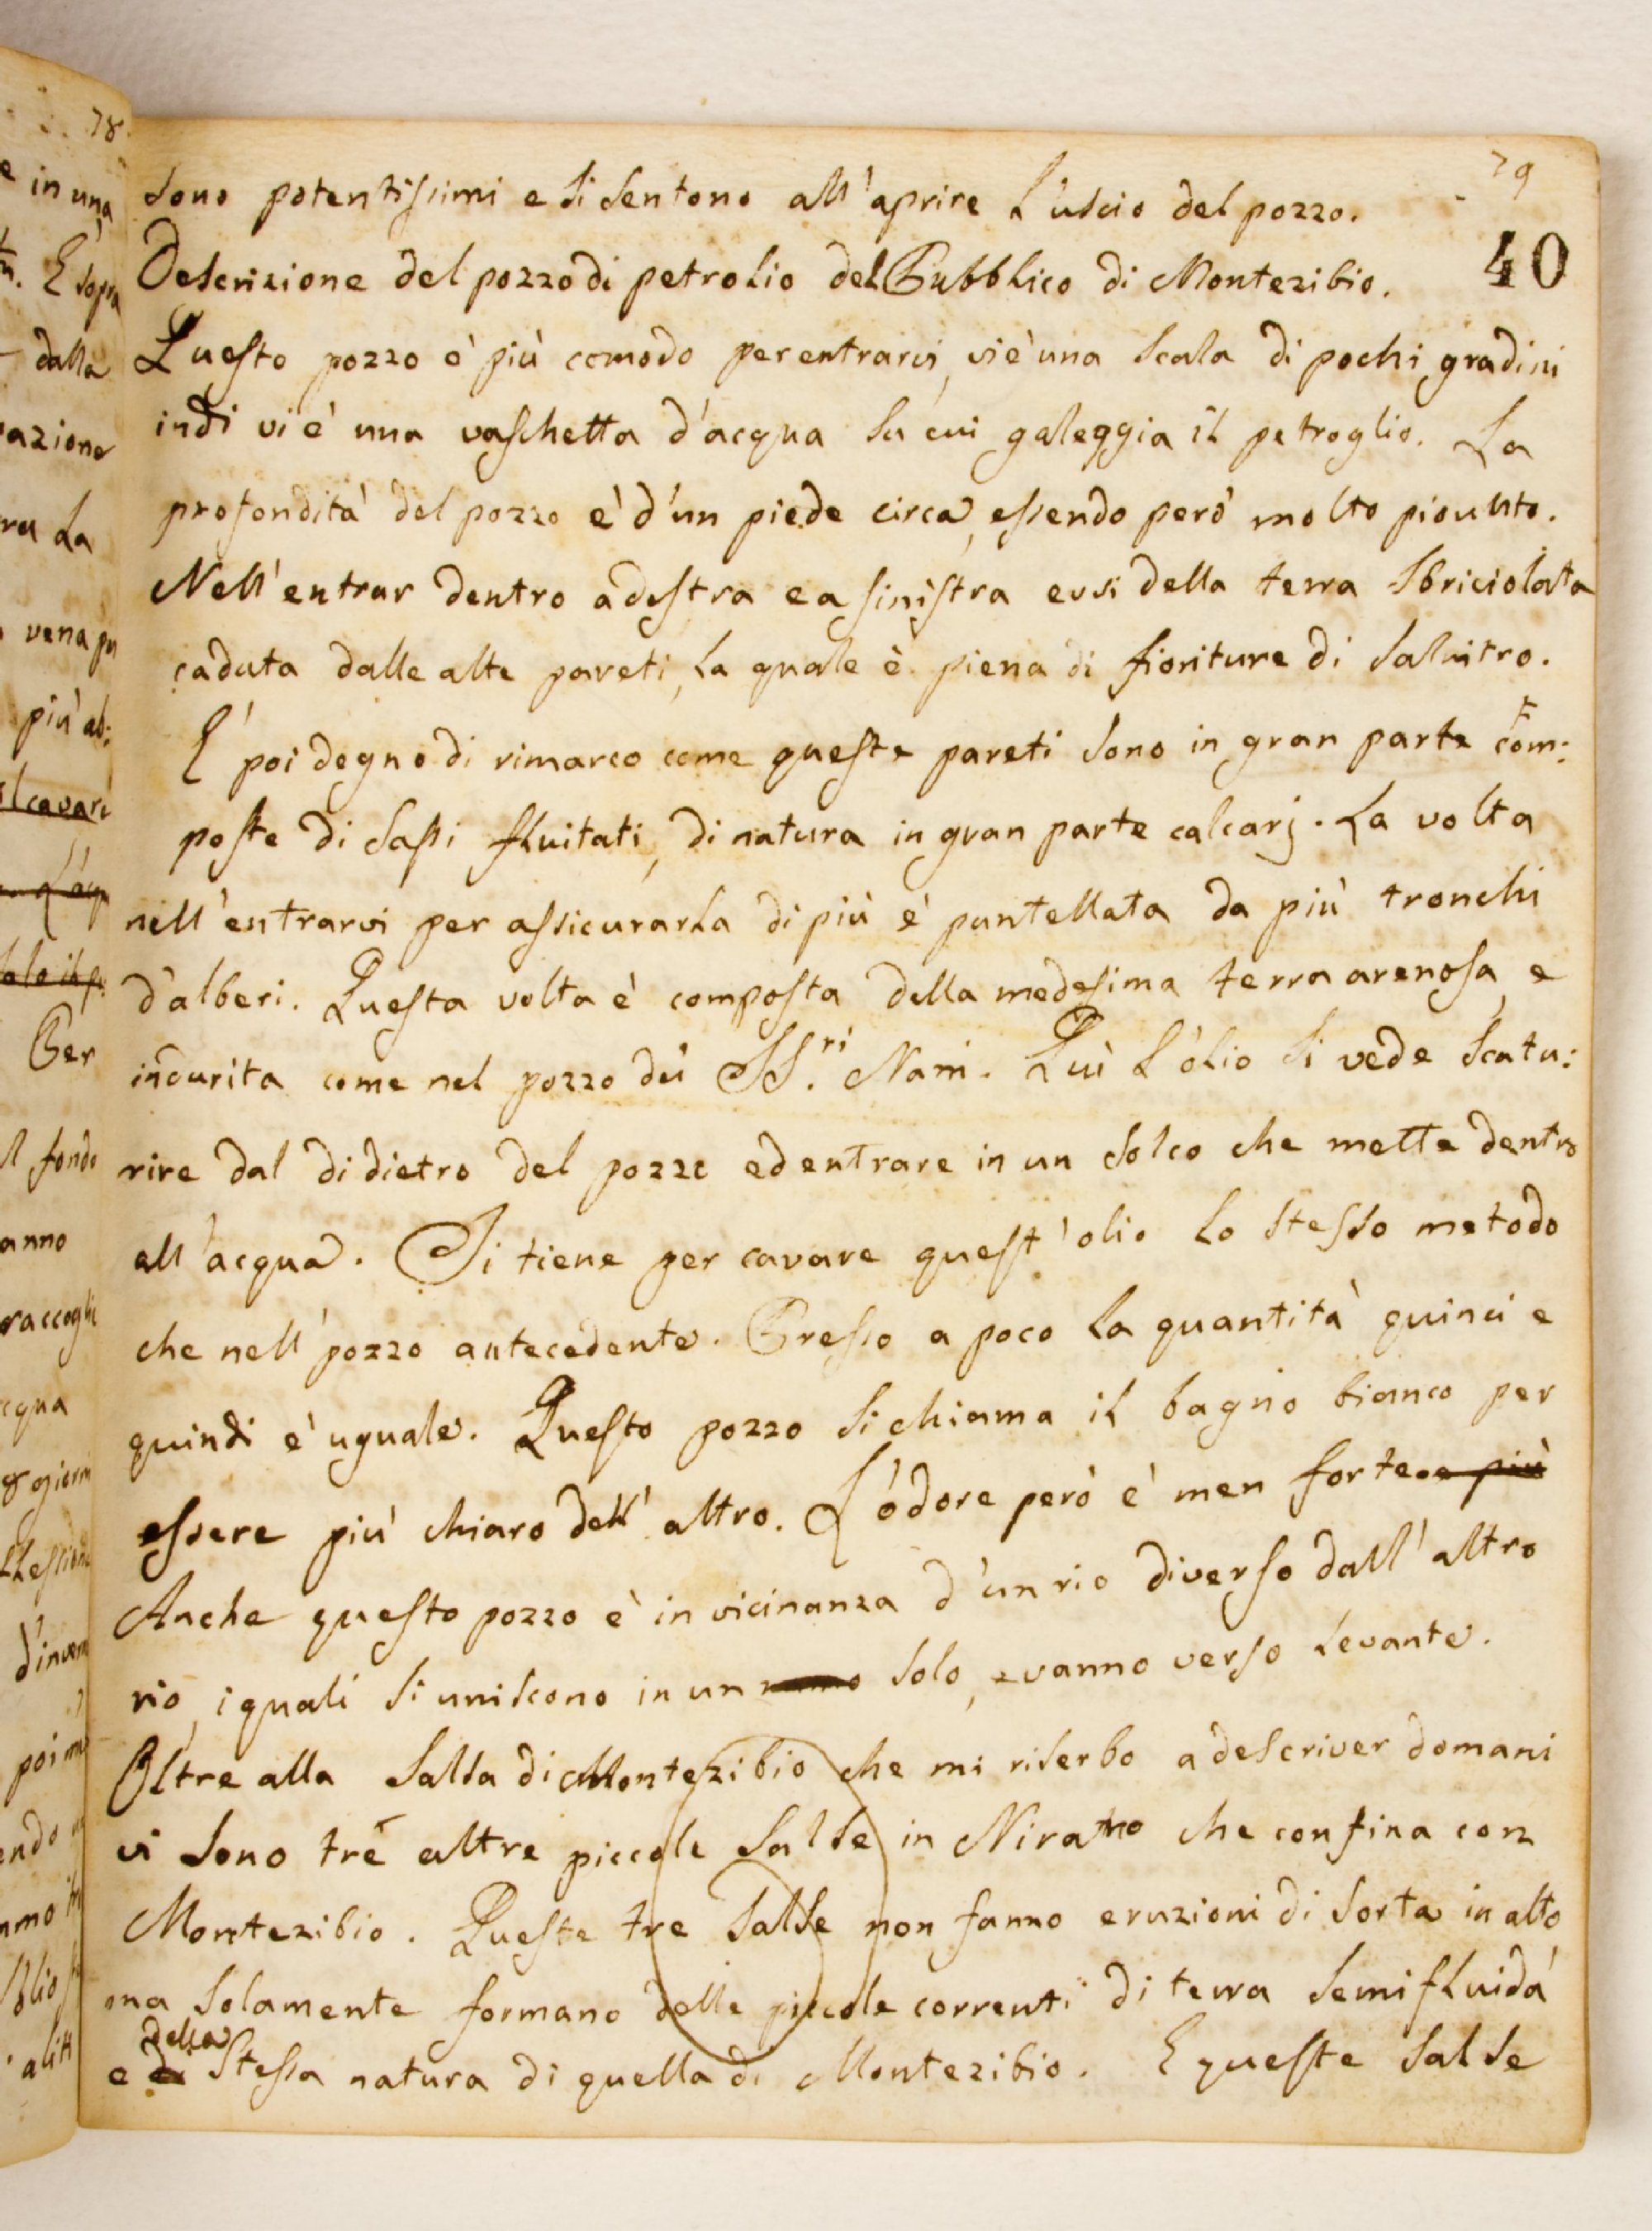 79
40
sono potentissimi e si sentono all'aprire l'uscio del pozzo.
Descrizione del pozzo di petrolio del Pubblico di Montezibio.
Questo pozzo è più comodo per entrarvi, vi è una scala di pochi gradini
indi vi è una vaschetta d'acqua su cui galeggia il petroglio. La
profondità del pozzo è d'un piede circa, essendo però molto piovuto.
Nell'entrar dentro a destra e a sinistra evvi della terra sbriciolata
caduta dalle alte pareti, la quale è piena di fioriture di salnitro.
E' poi degno di rimarco come queste pareti sono in gran parte com:
poste di sassi fluitati, di natura in gran parte calcarj. La volta
nell'entrarvi per assicurarla di più è puntellata da più tronchi
d'alberi. Questa volta è composta della medesima terra arenosa, e
indurita come nel pozzo dei SS.ri Nani. Quì l'olio si vede scatu:
rire dal di dietro del pozzo ed entrare in un solco che mette dentro
all'acqua. Si tiene per cavare quest'olio lo stesso metodo
che nell'pozzo antecedente. Presso a poco la quantità quinci e
quindi è uguale. Questo pozzo si chiama il bagno bianco per
essere più chiaro dell'altro. L'odore però è men forte e più
Anche questo pozzo è in vicinanza d'un rio diverso dall'altro
rio, i quali si uniscono in un solo, e vanno verso levante.
Oltre alla Salsa di Montezibio che mi riserbo a descriver domani
vi sono trè altre piccole Salse in Nirano che confina con
Montezibio. Queste tre Salse non fanno eruzioni di sorta in alto
ma solamente formano delle piccole correnti di terra semifluida
della
e stessa natura di quella di Montezibio. E queste Salse
78
e in una
E sopra
dalla
azione
ra la
vena
più ab:
Per
il fondo
anno
raccogli
acqua
d'inver
poi
endo